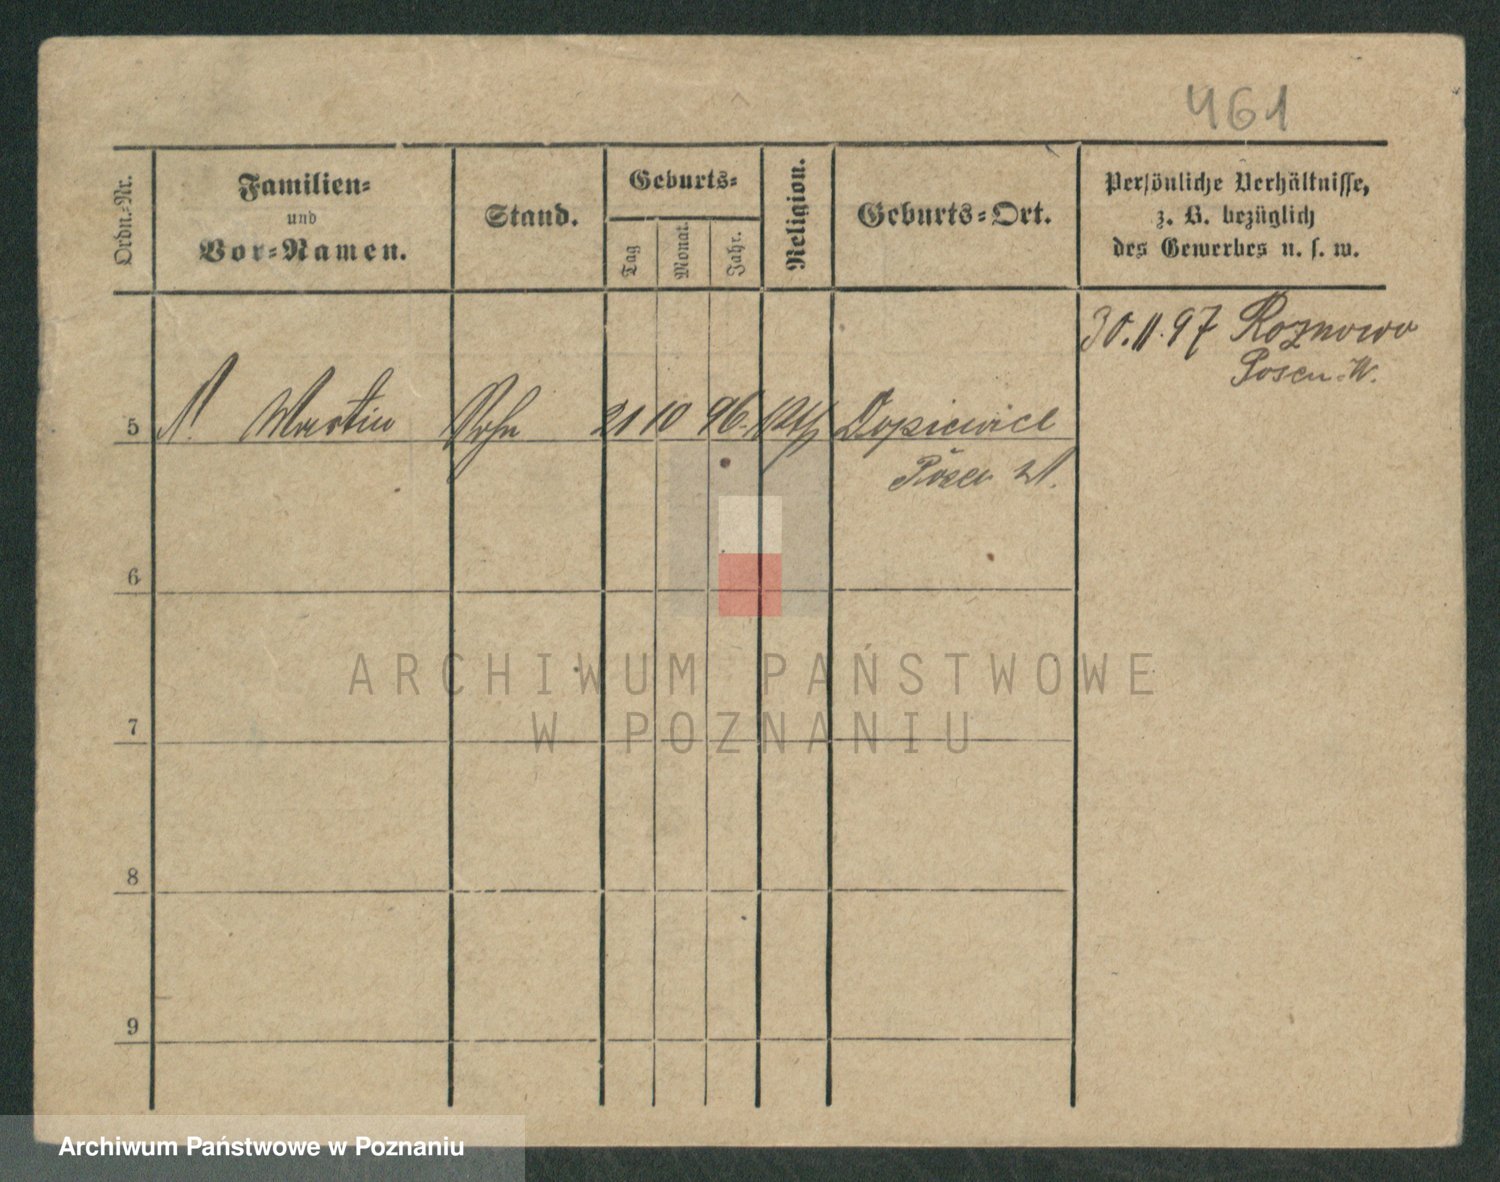 461
Ordn.-Nr.
Familien-
und
Vor-Namen.
Stand.
Geburts-
Tag
Monat.
Jahr.
Religion.
Geburts-Ort.
Persönliche Verhältnisse,
z. B. bezüglich
des Gewerbes u. s. w.
30.11.97 Roznowo
Posen-W.
5 N. Martin Sohn 21 10 96. kth Dopiewice
Posen W.
6
ARCHIWUM PAŃSTWOWE
W POZNANIU
7
8
9
Archiwum Państwowe w Poznaniu